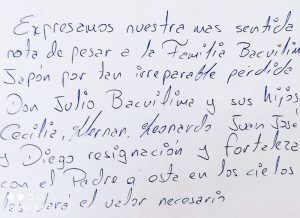 Expresamos nuestra mas sentida
nota de pesar a la Familia Bacuilima
Japón por tan irreparable perdida
Don Julio Bacuilima y sus hijos
Cecilia, Hernan, Leonardo Juan José
y Diego resignación y fortaleza
con el Padre q esta en los cielos
les dará el valor necesario